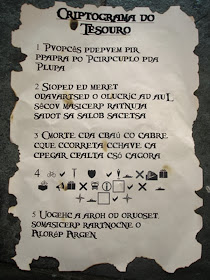 Criptograma do
Tesouro
1 Pvopcês pdepvem pir
ppapra po pcprpcuplo pda
Plupa
2 Sioped ed meret
odavartsed o olucric ad auL
sêcov masicerp ratnuja
sadot sa salob sacetsa
3 Cmorte cda cbaú co cabre
cque ccorreta cchave ca
cpegar cfalta csó cagora
4
5 Uogehc a aroh od oruoset.
Somasicerp rartnocne o